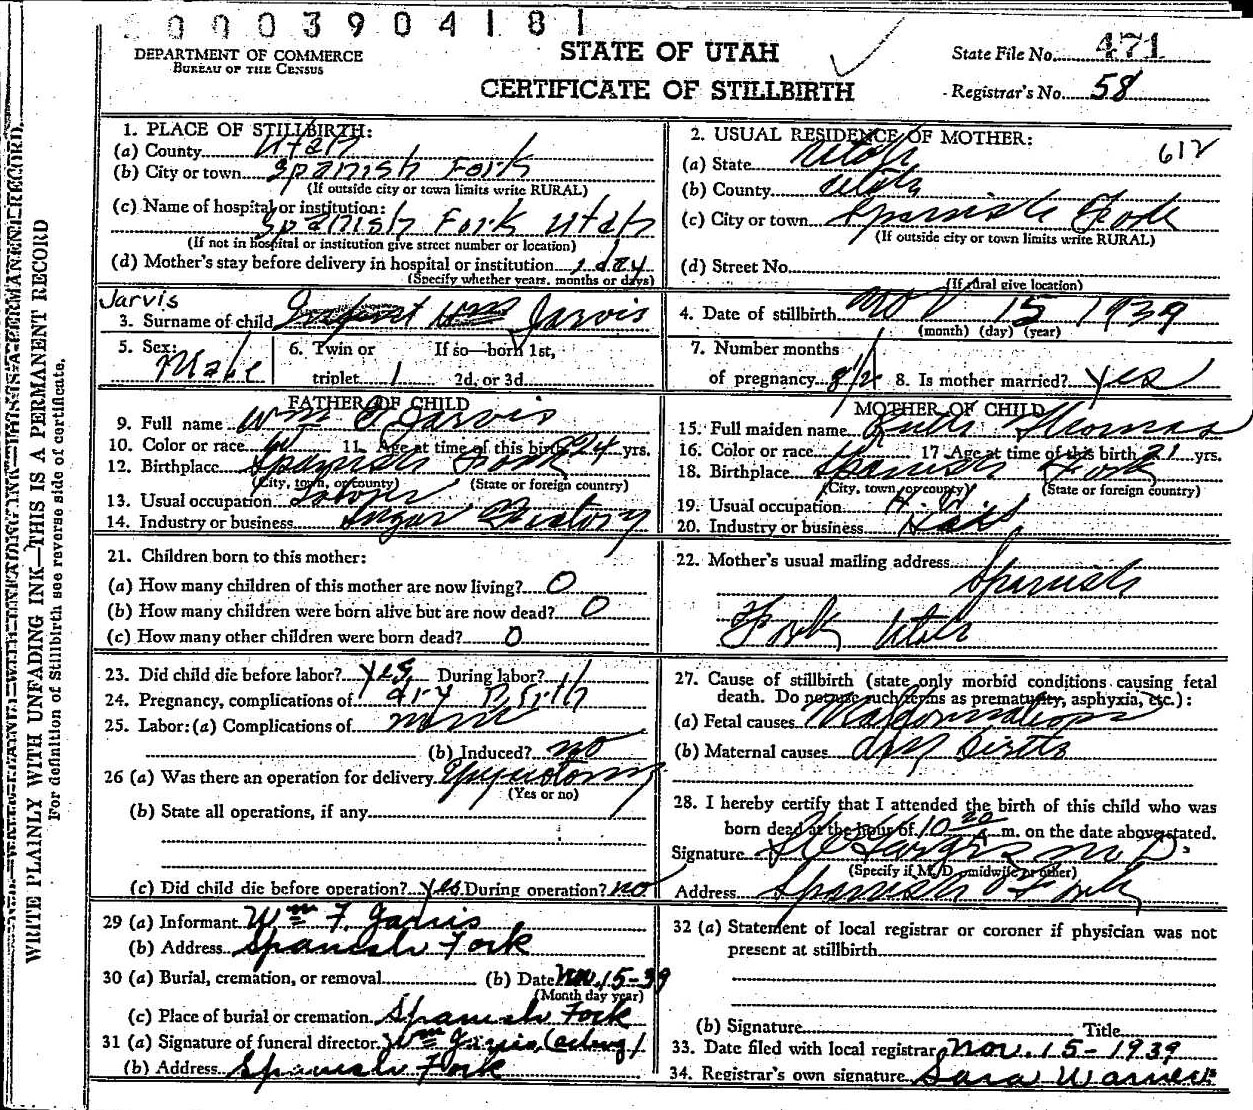 0003904181
DEPARTMENT OF COMMERCE
BUREAU OF THE CENSUS
STATE OF UTAH
CERTIFICATE OF STILLBIRTH
State File No. 471
Registrar's No. 58
WRITE PLAINLY WITH UNFADING INK—THIS IS A PERMANENT RECORD
For definition of Stillbirth see reverse side of certificate.
1. PLACE OF STILLBIRTH:
(a) County Utah
(b) City or town Spanish Fork
(If outside city or town limits write RURAL)
(c) Name of hospital or institution:
Spanish Fork Utah
(If not in hospital or institution give street number or location)
(d) Mother's stay before delivery in hospital or institution 1 day
(Specify whether years, months or days)
2. USUAL RESIDENCE OF MOTHER:
612
(a) State Utah
(b) County Utah
(c) City or town Spanish Fork
(If outside city or town limits write RURAL)
(d) Street No.
(If rural give location)
Jarvis
3. Surname of child Infant Wm Jarvis
4. Date of stillbirth Nov 15 1939
(month) (day) (year)
5. Sex: Male
6. Twin or triplet 1 If so—born 1st, 2d, or 3d
7. Number months of pregnancy 8 1/2
8. Is mother married? yes
FATHER OF CHILD
9. Full name Wm F Jarvis
10. Color or race W 11. Age at time of this birth 24 yrs.
12. Birthplace Spanish Fork
(City, town, or county) (State or foreign country)
13. Usual occupation Labor
14. Industry or business Sugar Factory
MOTHER OF CHILD
15. Full maiden name Thomas
16. Color or race 17 Age at time of this birth 21 yrs.
18. Birthplace Spanish Fork
(City, town or county) (State or foreign country)
19. Usual occupation H. W.
20. Industry or business
21. Children born to this mother:
(a) How many children of this mother are now living? 0
(b) How many children were born alive but are now dead? 0
(c) How many other children were born dead? 0
22. Mother's usual mailing address Spanish
Fork Utah
23. Did child die before labor? yes During labor?
24. Pregnancy, complications of dry birth
25. Labor: (a) Complications of none
(b) Induced? no
26 (a) Was there an operation for delivery
(Yes or no)
(b) State all operations, if any
(c) Did child die before operation? yes During operation? no
27. Cause of stillbirth (state only morbid conditions causing fetal
death. Do not use such terms as prematurity, asphyxia, etc.):
(a) Fetal causes
(b) Maternal causes dry birth
28. I hereby certify that I attended the birth of this child who was
born dead at the hour of 10 20 a.m. on the date above stated.
Signature M D.
(Specify if M. D., midwife or other)
Address Spanish Fork
29 (a) Informant Wm F. Jarvis
(b) Address Spanish Fork
30 (a) Burial, cremation, or removal (b) Date Nov. 15-39
(Month day year)
(c) Place of burial or cremation Spanish Fork
31 (a) Signature of funeral director Wm Jarvis
(b) Address Spanish Fork
32 (a) Statement of local registrar or coroner if physician was not
present at stillbirth
(b) Signature Title
33. Date filed with local registrar Nov. 15-1939
34. Registrar's own signature Sara Warner